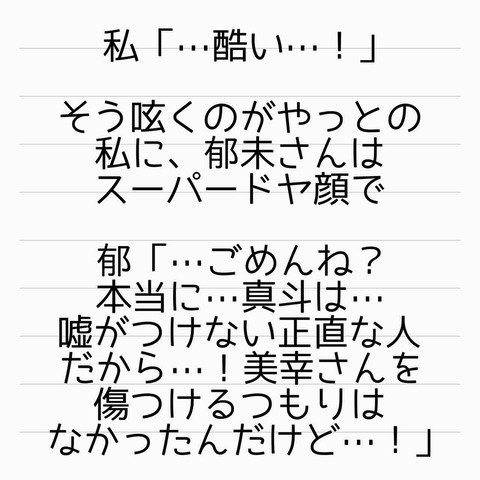 私「…酷い…！」
そう呟くのがやっとの
私に、郁未さんは
スーパードヤ顔で
郁「…ごめんね？
本当に…真斗は…
嘘がつけない正直な人
だから…！美幸さんを
傷つけるつもりは
なかったんだけど…！」